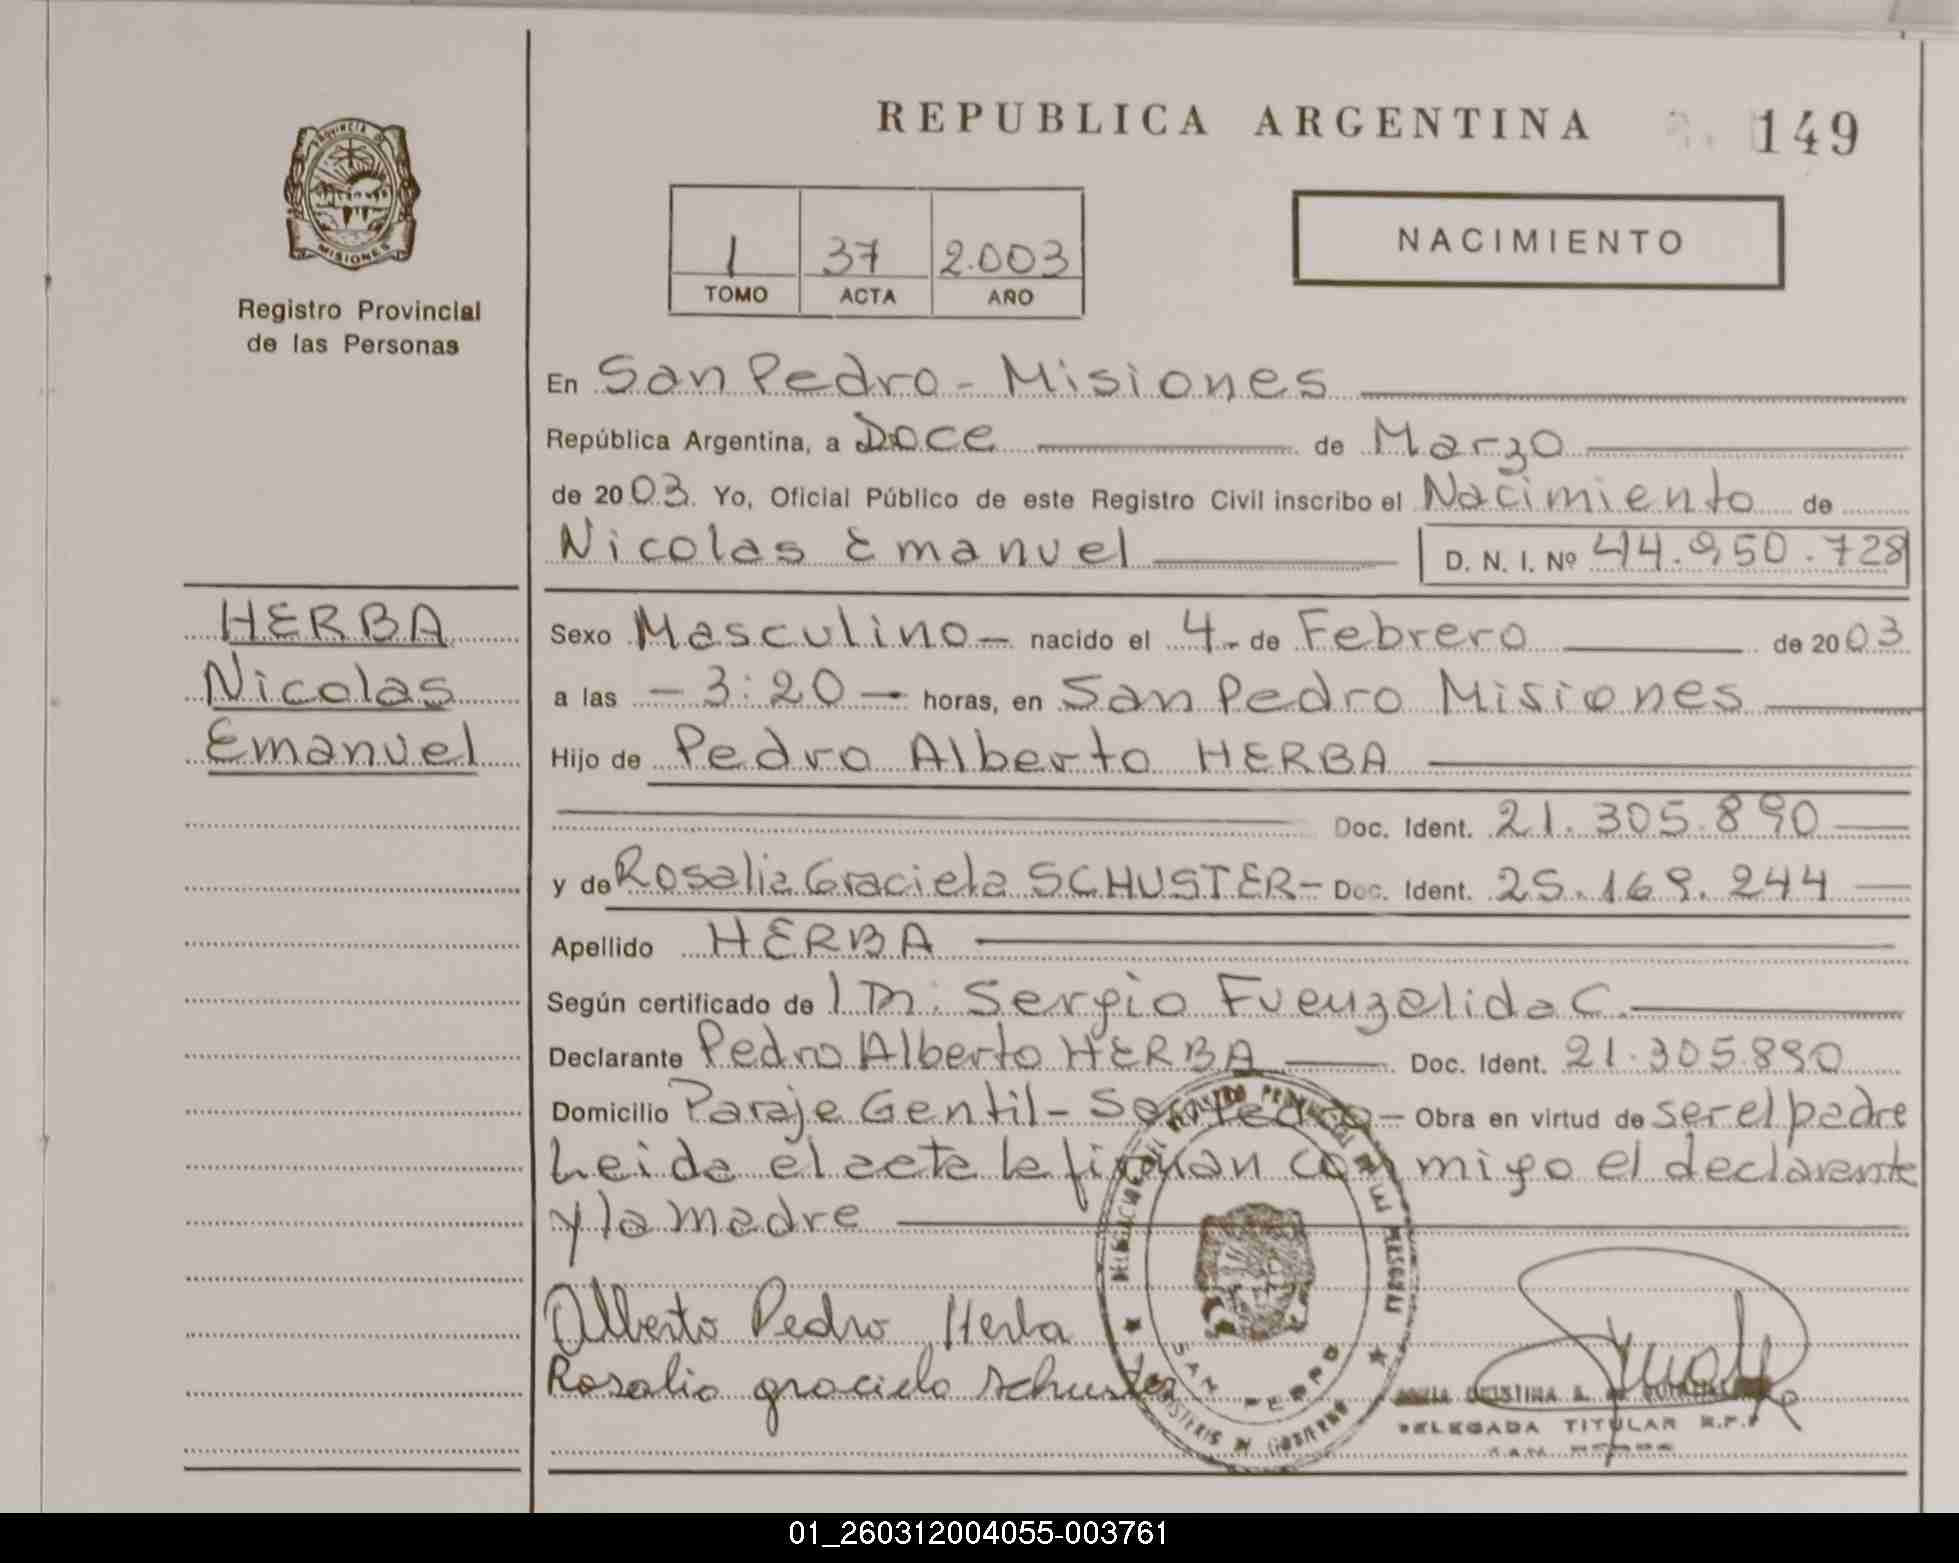 REPUBLICA ARGENTINA
149
PROVINCIA DE
MISIONES
Registro Provincial
de las Personas
1 37 2.003
TOMO ACTA AÑO
NACIMIENTO
En San Pedro - Misiones
República Argentina, a Doce de Marzo
de 2003. Yo, Oficial Público de este Registro Civil inscribo el Nacimiento de
Nicolas Emanuel D. N. I. Nº 44.950.728
HERBA
Nicolas
Emanuel
Sexo Masculino - nacido el 4 - de Febrero de 2003
a las - 3:20 - horas, en San Pedro Misiones
Hijo de Pedro Alberto HERBA
Doc. Ident. 21.305.890
y de Rosalia Graciela SCHUSTER - Doc. Ident. 25.169.244
Apellido HERBA
Según certificado de Sergio Fuenzelida C.
Declarante Pedro Alberto HERBA Doc. Ident. 21.305.890
Domicilio Paraje Gentil - San Pedro - Obra en virtud de ser el padre
Leida el acta la firman conmigo el declarante
y la madre
Alberto Pedro Herba
Rosalia graciela schuster
SAN PEDRO
MINISTERIO DE GOBIERNO
CRISTINA
DELEGADA TITULAR R.P.P
SAN PEDRO
01_260312004055-003761